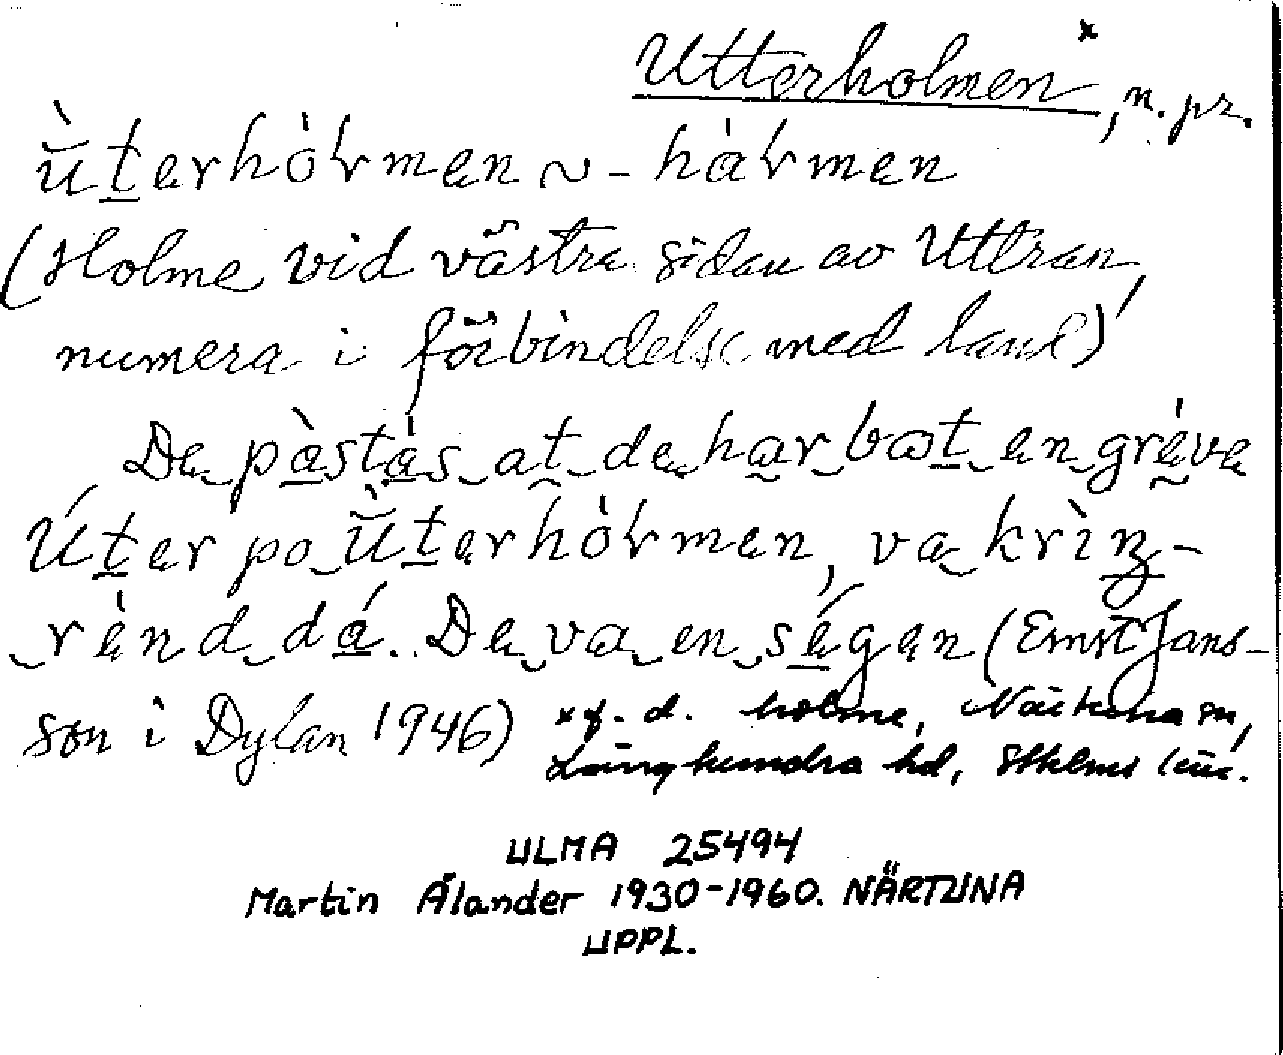 Utterholmen x, n. pr.
ùterhòɽmen ~ -hàɽmen
(Holme vid västra sidan av Uttran,
numera i förbindelse med land)
De pàstás at de har bot en gréve
Úter po ùterhòɽmen, va kriŋ-
rènd dá. De va en ségen (Ernst Jans-
son i Dylan 1946) x f. d. holme, Närtuna sn,
Långhundra hd, Sthlms län.
ULMA 25494
Martin Ålander 1930-1960. NÄRTUNA
UPPL.